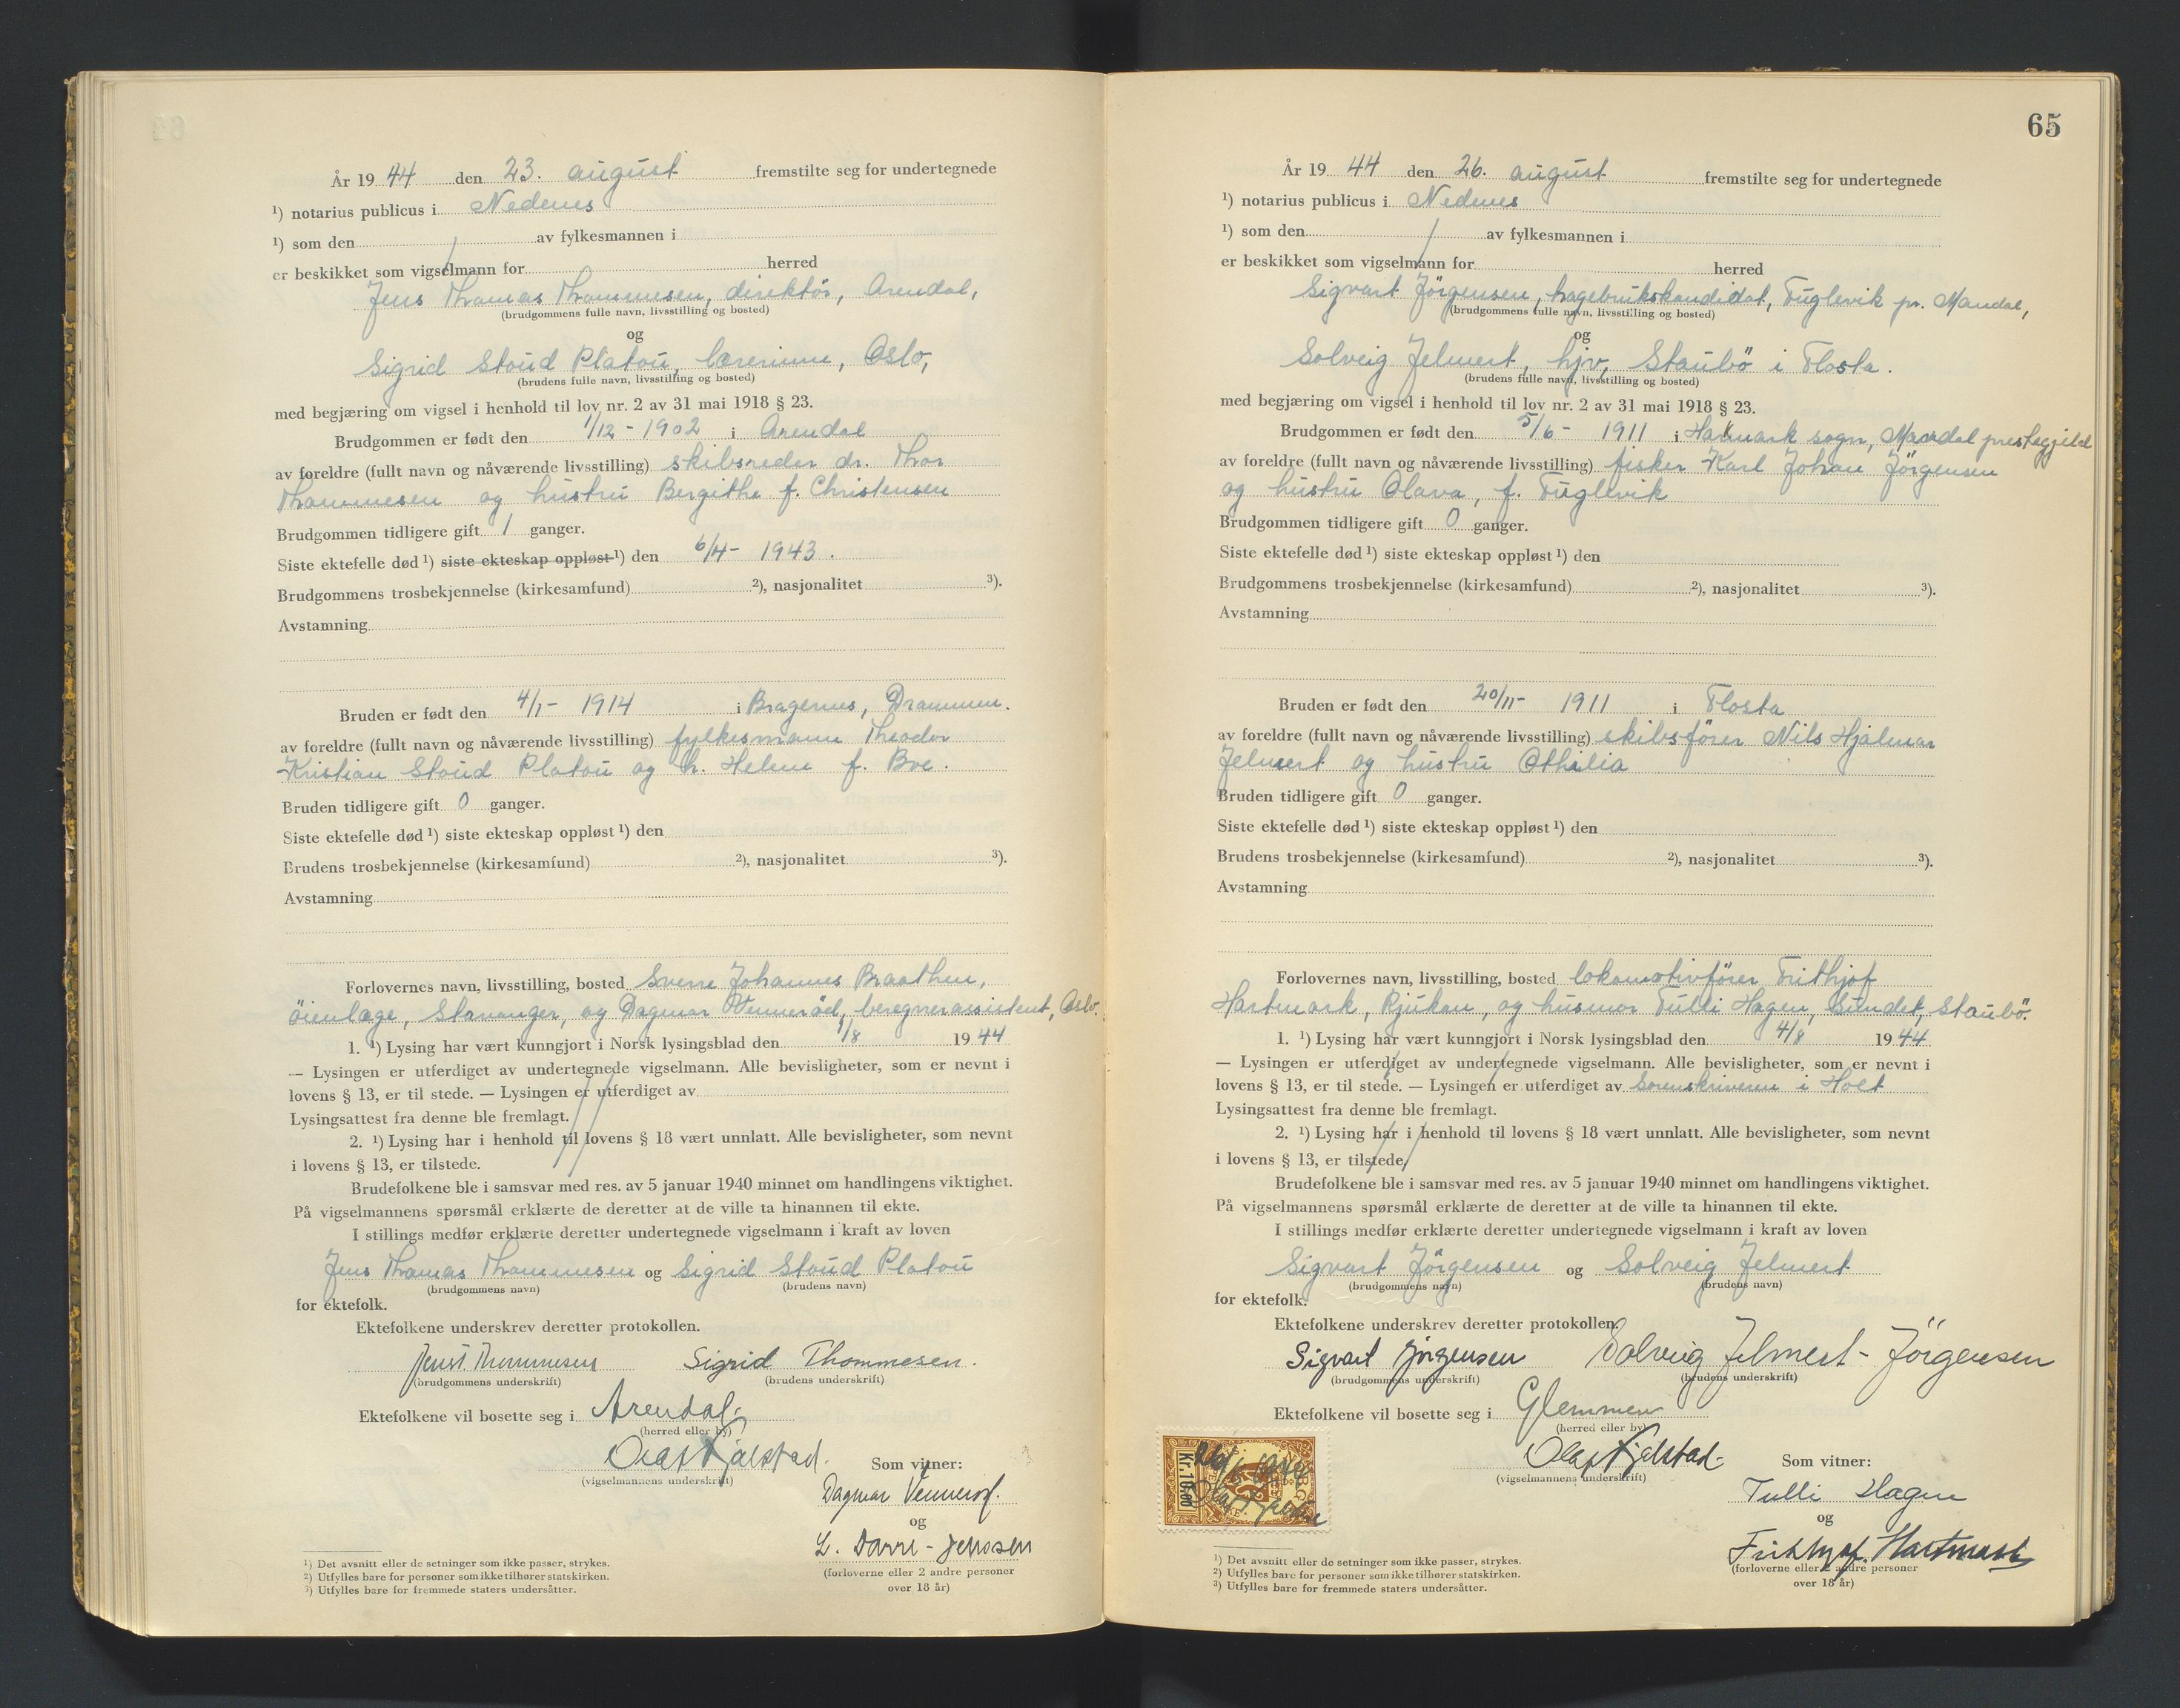 År 19 44 den 23. august fremstilte seg for undertegnede
¹) notarius publicus i Nedenes
¹) som den / av fylkesmannen i
er beskikket som vigselmann for herred
Jens Thomas Thommesen, direktör, Arendal,
(brudgommens fulle navn, livsstilling og bosted)
og
Sigrid Stoud Platou, lærerinne, Oslo,
(brudens fulle navn, livsstilling og bosted)
med begjæring om vigsel i henhold til lov nr. 2 av 31 mai 1918 § 23.
Brudgommen er født den 1/12 - 1902 i Arendal
av foreldre (fullt navn og nåværende livsstilling) skibsreder dr. Thor
Thommesen og hustru Bergithe f. Christensen
Brudgommen tidligere gift 1 ganger.
Siste ektefelle død ¹) siste ekteskap oppløst ¹) den 6/4 - 1943.
Brudgommens trosbekjennelse (kirkesamfund) ²), nasjonalitet ³).
Avstamning
Bruden er født den 4/1 - 1914 i Bragernes, Drammen.
av foreldre (fullt navn og nåværende livsstilling) fylkesmann Theodor
Kristian Stoud Platou og h. Helene f. Boe.
Bruden tidligere gift 0 ganger.
Siste ektefelle død ¹) siste ekteskap oppløst ¹) den
Brudens trosbekjennelse (kirkesamfund) ²), nasjonalitet ³).
Avstamning
Forlovernes navn, livsstilling, bosted Sverre Johannes Braathen,
öienlæge, Stavanger, og Dagmar Vennerød, beregnerassistent, Oslo.
1. ¹) Lysing har vært kunngjort i Norsk lysingsblad den 1/8 19 44
— Lysingen er utferdiget av undertegnede vigselmann. Alle bevisligheter, som er nevnt i
lovens § 13, er til stede. — Lysingen er utferdiget av
Lysingsattest fra denne ble fremlagt.
2. ¹) Lysing har i henhold til lovens § 18 vært unnlatt. Alle bevisligheter, som nevnt
i lovens § 13, er tilstede.
Brudefolkene ble i samsvar med res. av 5 januar 1940 minnet om handlingens viktighet.
På vigselmannens spørsmål erklærte de deretter at de ville ta hinannen til ekte.
I stillings medfør erklærte deretter undertegnede vigselmann i kraft av loven
Jens Thomas Thommesen og Sigrid Stoud Platou
(brudgommens navn) (brudens navn)
for ektefolk.
Ektefolkene underskrev deretter protokollen.
Jens T. Thommesen Sigrid Thommesen.
(brudgommens underskrift) (brudens underskrift)
Ektefolkene vil bosette seg i Arendal.
(herred eller by)
Olaf Fjalstad.
(vigselmannens underskrift) Som vitner:
Dagmar Vennerød.
og
L. Darre-Jenssen
(forloverne eller 2 andre personer
over 18 år)
¹) Det avsnitt eller de setninger som ikke passer, strykes.
²) Utfylles bare for personer som ikke tilhører statskirken.
³) Utfylles bare for fremmede staters undersåtter.
65
År 19 44 den 26. august fremstilte seg for undertegnede
¹) notarius publicus i Nedenes
¹) som den / av fylkesmannen i
er beskikket som vigselmann for herred
Sigvart Jörgensen, hagebrukskandidat, Fuglevik pr. Mandal,
(brudgommens fulle navn, livsstilling og bosted)
og
Solveig Jelmert, hjv, Staubö i Flosta.
(brudens fulle navn, livsstilling og bosted)
med begjæring om vigsel i henhold til lov nr. 2 av 31 mai 1918 § 23.
Brudgommen er født den 5/6 - 1911 i Harkmark sogn, Mandal prestegjeld
av foreldre (fullt navn og nåværende livsstilling) fisker Karl Johan Jörgensen
og hustru Olava, f. Fuglevik
Brudgommen tidligere gift 0 ganger.
Siste ektefelle død ¹) siste ekteskap oppløst ¹) den
Brudgommens trosbekjennelse (kirkesamfund) ²), nasjonalitet ³).
Avstamning
Bruden er født den 20/11 - 1911 i Flosta
av foreldre (fullt navn og nåværende livsstilling) skibsförer Nils Hjalmar
Jelmert og hustru Othilia
Bruden tidligere gift 0 ganger.
Siste ektefelle død ¹) siste ekteskap oppløst ¹) den
Brudens trosbekjennelse (kirkesamfund) ²), nasjonalitet ³).
Avstamning
Forlovernes navn, livsstilling, bosted lokomotivförer Frithjof
Hartmark, Rjukan, og husmor Tulli Hagen, Sundet, Staubö.
1. ¹) Lysing har vært kunngjort i Norsk lysingsblad den 4/8 19 44
— Lysingen er utferdiget av undertegnede vigselmann. Alle bevisligheter, som er nevnt i
lovens § 13, er til stede. — Lysingen er utferdiget av Sorenskriveren i Holt
Lysingsattest fra denne ble fremlagt.
2. ¹) Lysing har i henhold til lovens § 18 vært unnlatt. Alle bevisligheter, som nevnt
i lovens § 13, er tilstede.
Brudefolkene ble i samsvar med res. av 5 januar 1940 minnet om handlingens viktighet.
På vigselmannens spørsmål erklærte de deretter at de ville ta hinannen til ekte.
I stillings medfør erklærte deretter undertegnede vigselmann i kraft av loven
Sigvart Jörgensen og Solveig Jelmert
(brudgommens navn) (brudens navn)
for ektefolk.
Ektefolkene underskrev deretter protokollen.
Sigvart Jörgensen Solveig Jelmert-Jörgensen
(brudgommens underskrift) (brudens underskrift)
Ektefolkene vil bosette seg i Glemmen
(herred eller by)
Olaf Fjalstad.
(vigselmannens underskrift) Som vitner:
Kr. 10.00
Tulli Hagen
og
Frithjof Hartmark
(forloverne eller 2 andre personer
over 18 år)
¹) Det avsnitt eller de setninger som ikke passer, strykes.
²) Utfylles bare for personer som ikke tilhører statskirken.
³) Utfylles bare for fremmede staters undersåtter.